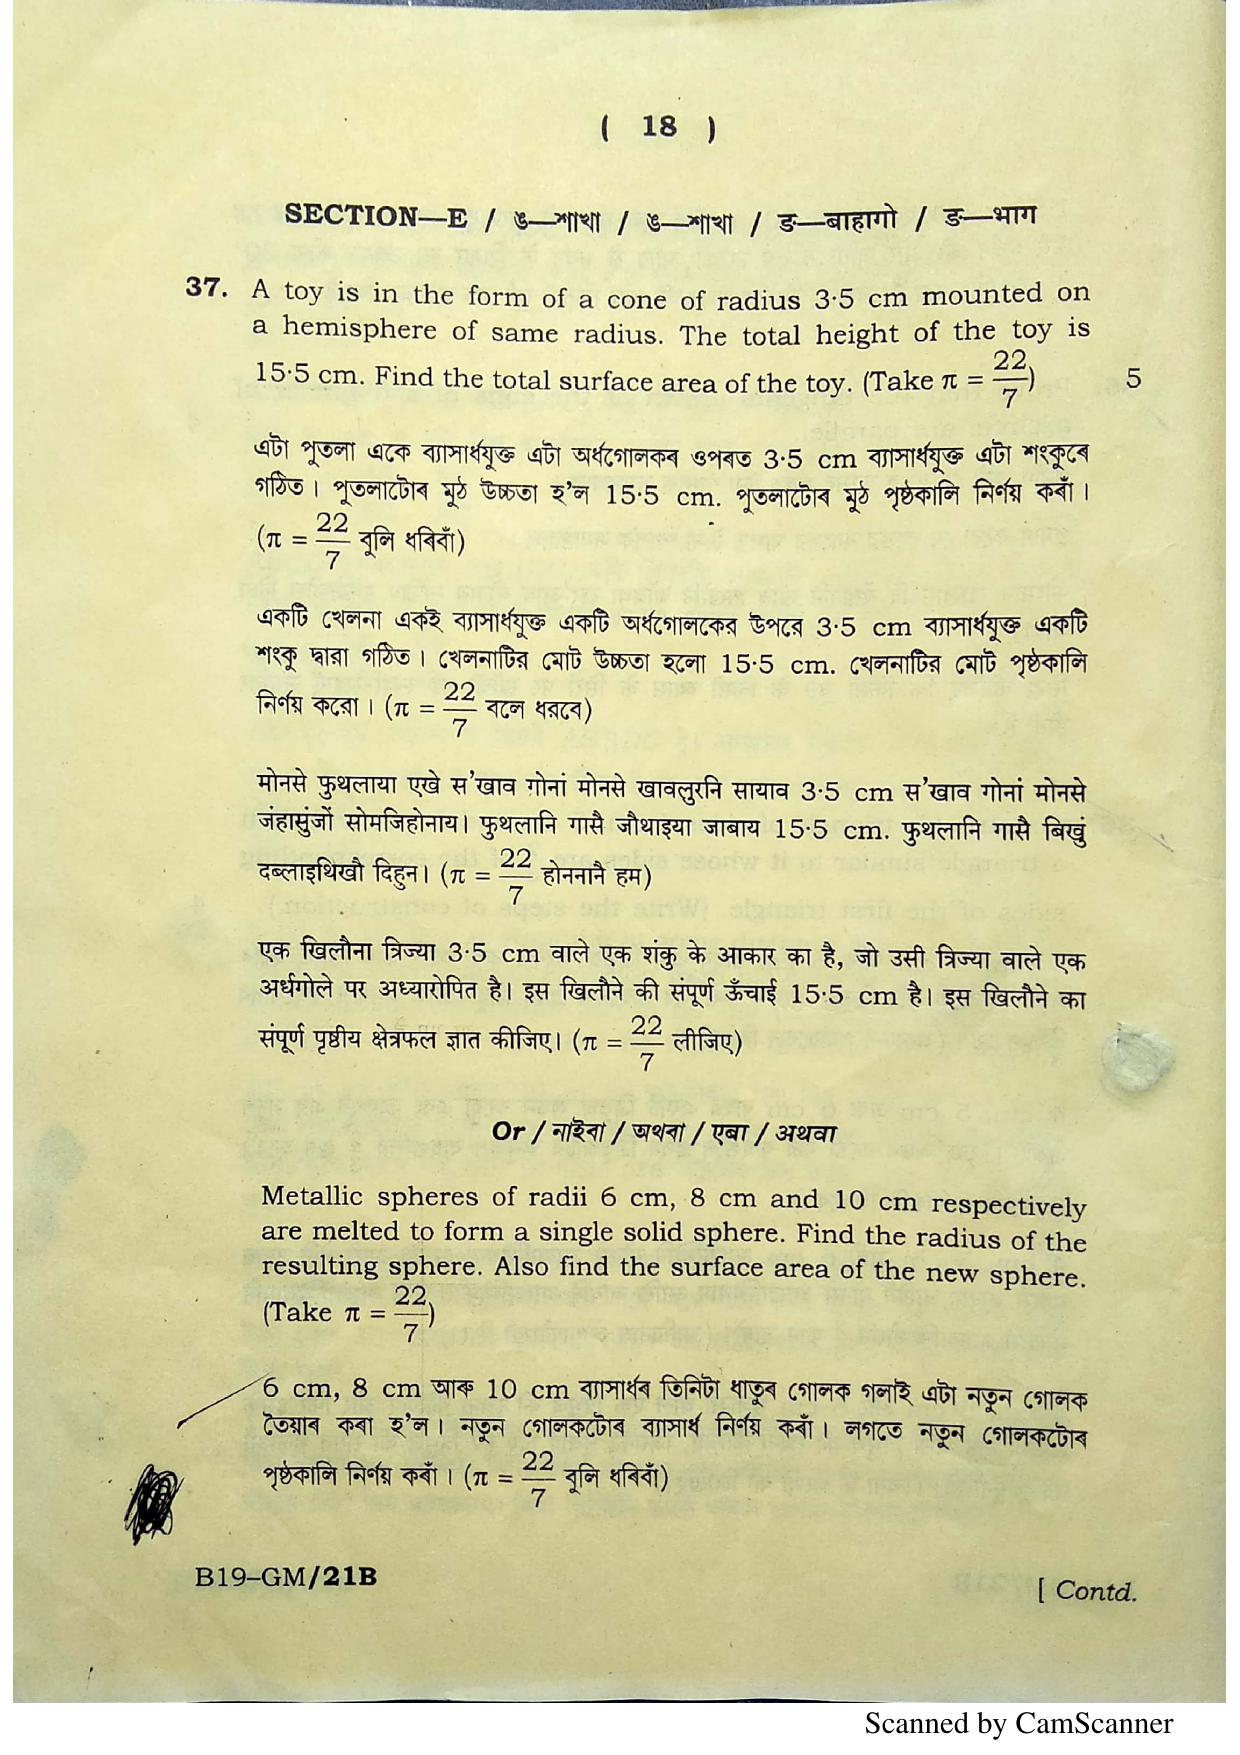 ( 18 )
SECTION—E / ঙ—শাখা / ঙ—শাখা / ङ—बाहागो / ङ—भाग
37. A toy is in the form of a cone of radius 3·5 cm mounted on
a hemisphere of same radius. The total height of the toy is
15·5 cm. Find the total surface area of the toy. (Take π = 22/7) 5
এটা পুতলা একে ব্যাসাৰ্ধযুক্ত এটা অৰ্ধগোলকৰ ওপৰত 3·5 cm ব্যাসাৰ্ধযুক্ত এটা শংকুৰে
গঠিত। পুতলাটোৰ মুঠ উচ্চতা হ'ল 15·5 cm. পুতলাটোৰ মুঠ পৃষ্ঠকালি নিৰ্ণয় কৰাঁ।
(π = 22/7 বুলি ধৰিবাঁ)
একটি খেলনা একই ব্যাসার্ধযুক্ত একটি অর্ধগোলকের উপরে 3·5 cm ব্যাসার্ধযুক্ত একটি
শংকু দ্বারা গঠিত। খেলনাটির মোট উচ্চতা হলো 15·5 cm. খেলনাটির মোট পৃষ্ঠকালি
নির্ণয় করো। (π = 22/7 বলে ধরবে)
मोनसे फुथलाया एखे स'खाव गोनां मोनसे खावलुरनि सायाव 3·5 cm स'खाव गोनां मोनसे
जंहासुंजों सोमजिहोनाय। फुथलानि गासै जौथाइया जाबाय 15·5 cm. फुथलानि गासै बिखुं
दब्लाइथिखौ दिहुन। (π = 22/7 होननानै हम)
एक खिलौना त्रिज्या 3·5 cm वाले एक शंकु के आकार का है, जो उसी त्रिज्या वाले एक
अर्धगोले पर अध्यारोपित है। इस खिलौने की संपूर्ण ऊँचाई 15·5 cm है। इस खिलौने का
संपूर्ण पृष्ठीय क्षेत्रफल ज्ञात कीजिए। (π = 22/7 लीजिए)
Or / নাইবা / অথবা / एबा / अथवा
Metallic spheres of radii 6 cm, 8 cm and 10 cm respectively
are melted to form a single solid sphere. Find the radius of the
resulting sphere. Also find the surface area of the new sphere.
(Take π = 22/7)
6 cm, 8 cm আৰু 10 cm ব্যাসাৰ্ধৰ তিনিটা ধাতুৰ গোলক গলাই এটা নতুন গোলক
তৈয়াৰ কৰা হ'ল। নতুন গোলকটোৰ ব্যাসাৰ্ধ নিৰ্ণয় কৰাঁ। লগতে নতুন গোলকটোৰ
পৃষ্ঠকালি নিৰ্ণয় কৰাঁ। (π = 22/7 বুলি ধৰিবাঁ)
B19–GM/21B
[ Contd.
Scanned by CamScanner